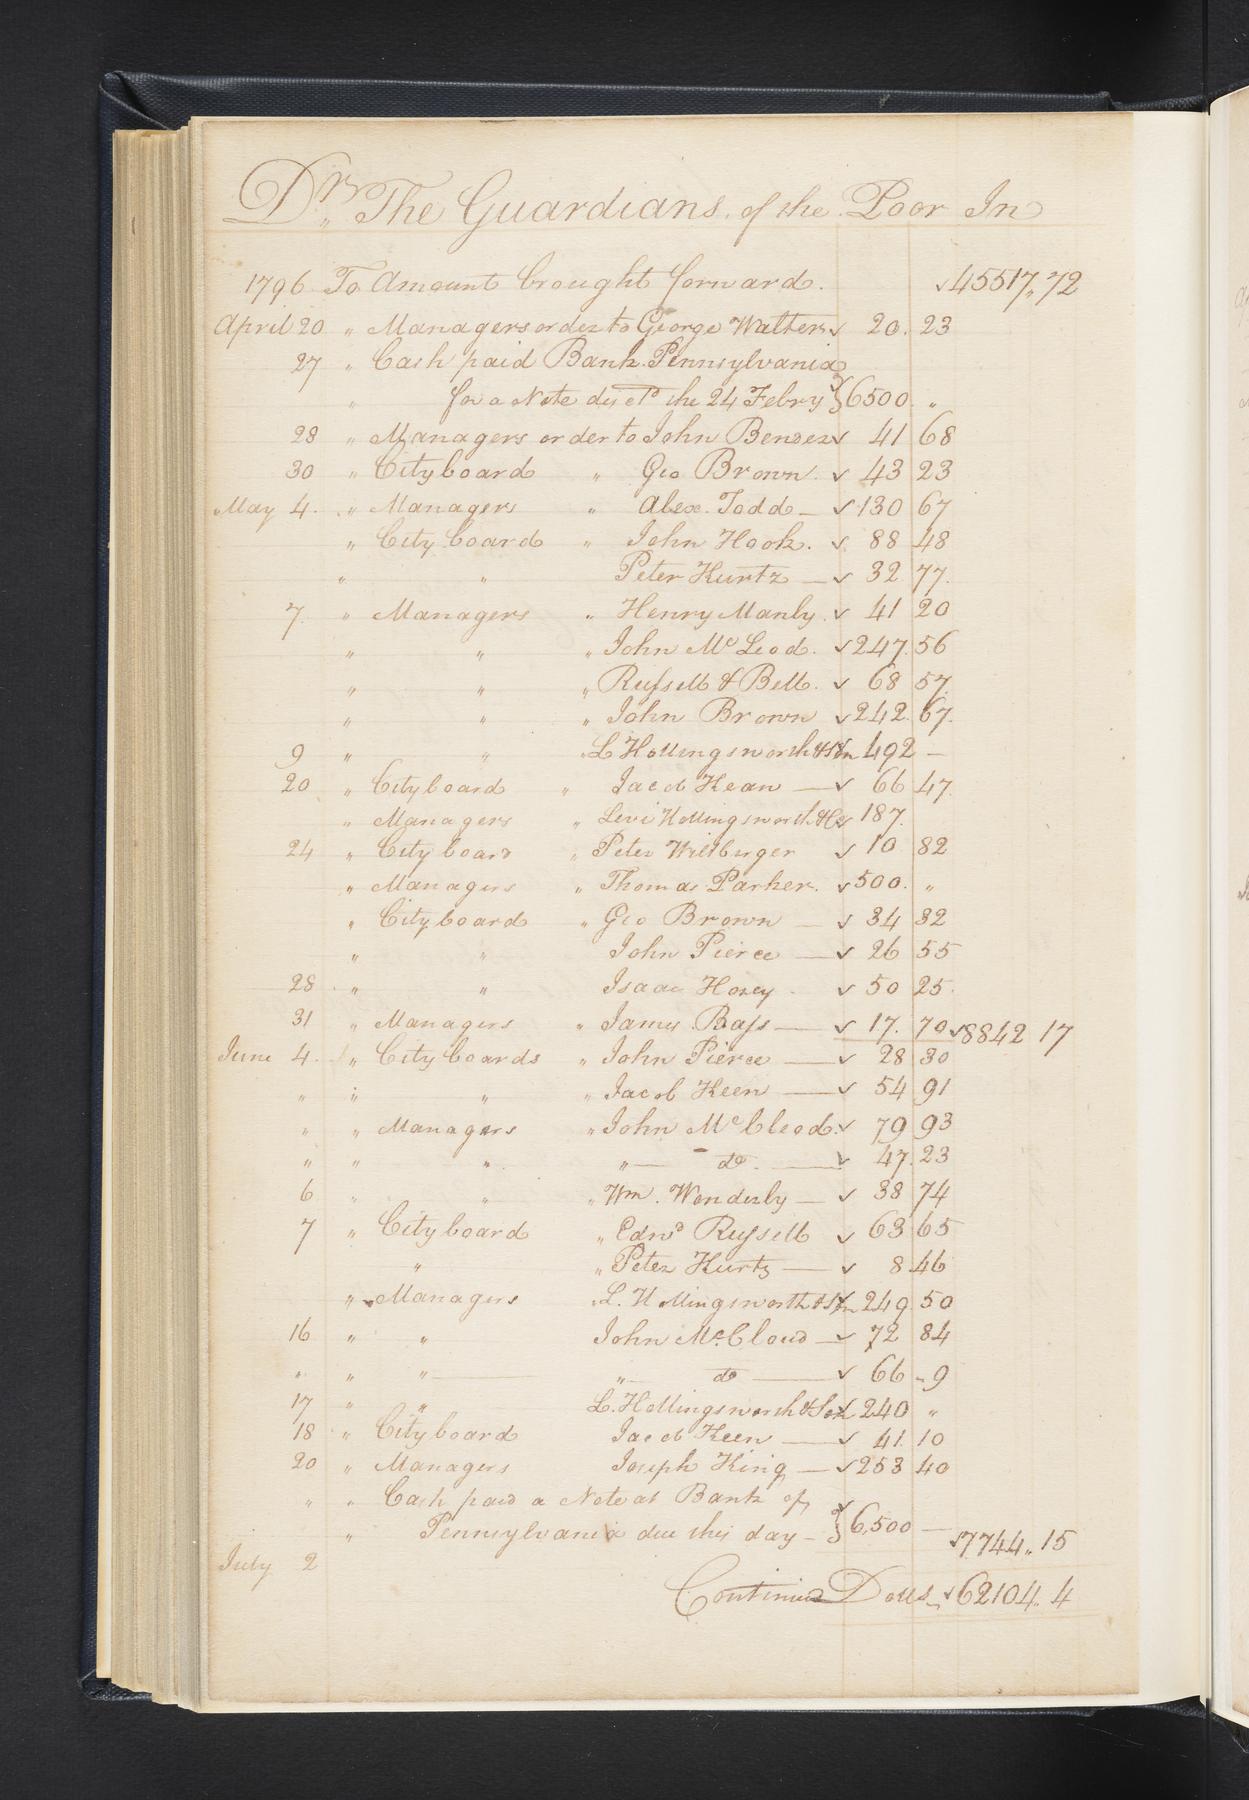 Dr,, The Guardians of the Poor In
1796 To Amount brought forward. 45517,,72
April 20 " Managers order to George Walters 20. 23
27 " Cash paid Bank Pennsylvania
" for a Note disctd the 24 Febry } 6500 "
28 " Managers order to John Bender 41 68
30 " Cityboard " Geo Brown 43 23
May 4. " Managers " Alex. Todd 130 67
" City board " John Hook. 88 48
" " Peter Kurtz 32 77
7 " Managers " Henry Manly 41 20
" " " John McLeod. 247. 56
" " " Russell & Bell. 68 57
" " " John Brown 242. 67
9 " " " L Hollingsworth & Son 492 —
20 " Cityboard " Jacob Kean 66 47
" Managers " Levi Hollingsworth & Co 187.
24 " City board " Peter Wiltberger 10 82
" Managers " Thomas Parker. 500. "
" Cityboard " Geo Brown 34 32
" " John Pierce 26 55
28 " " Isaac Hozey 50 25
31 " Managers " James Bass 17. 70 8842 17
June 4. " City boards " John Pierce 28 30
" " " " Jacob Keen 54 91
" " Managers " John McCleod. 79 93
" " " " do. 47. 23
6 " " " Wm. Wonderly 38 74
7 " City board " Edwd Russell 63 65
" " Peter Kurtz 8 46
" Managers " L. Hollingsworth & Son 249 50
16 " " John McCloud 72 84
" " " " do 66 "9
17 " " L. Hollingsworth & Son 240 "
18 " City board Jacob Keen 41 10
20 " Managers Joseph King 253 40
" " Cash paid a Note at Bank of
" Pennsylvania due this day } 6,500 — 7744,,15
July 2
Continued Dolls 62104,,4